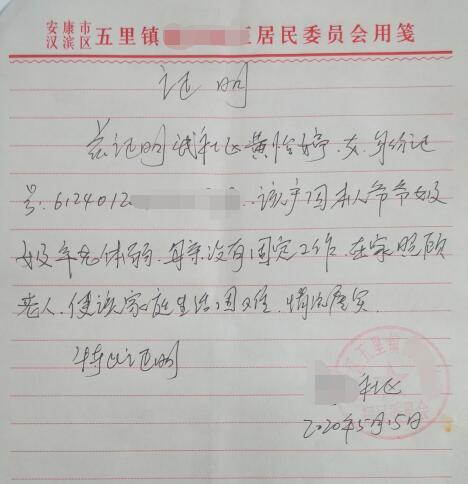 安康市汉滨区五里镇 居民委员会用笺
证明
兹证明我社区黄怡婷,女,身份证
号:6124012 该户因本人爷爷奶奶
年老体弱,母亲没有固定工作,在家照顾
老人,使该家庭生活困难,情况属实
特此证明
社区
2020年5月15日
五里镇